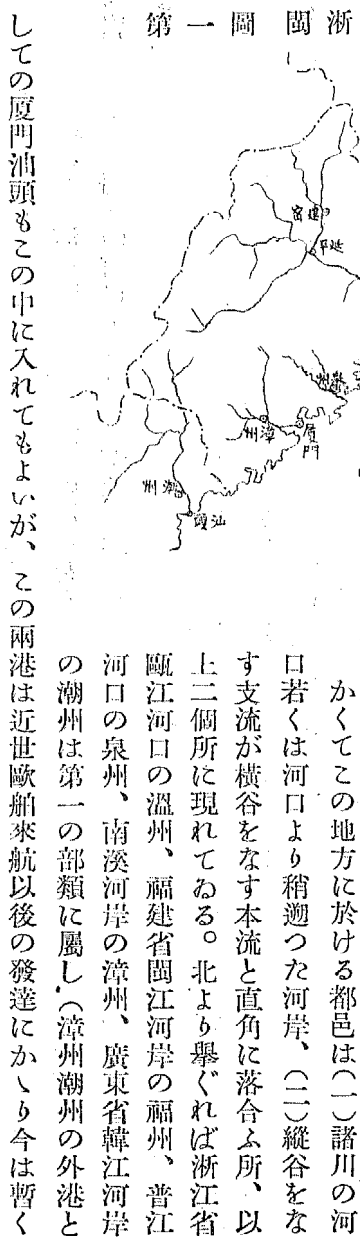 第一圖 閩浙
建甯
延平
泉州
漳州
厦門
潮州
汕頭
かくてこの地方に於ける都邑は(一)諸川の河
口若くは河口より稍遡つた河岸、(二)縱谷をな
す支流が橫谷をなす本流と直角に落合ふ所、以
上二個所に現れてゐる。北より擧ぐれば淅江省
甌江河口の溫州、福建省閩江河岸の福州、晉江
河口の泉州、南溪河岸の漳州、廣東省韓江河岸
の潮州は第一の部類に屬し(漳州潮州の外港と
しての厦門汕頭もこの中に入れてもよいが、この兩港は近世歐舶來航以後の發達にかゝり今は暫く